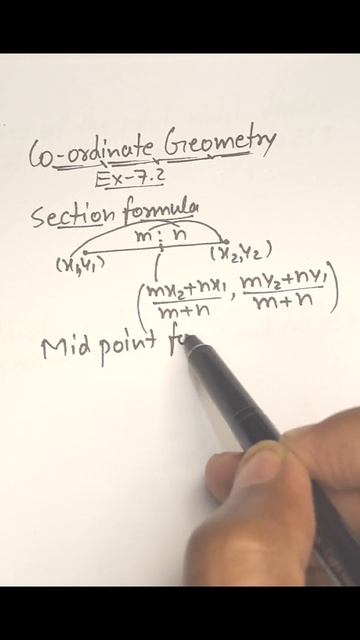 Co-ordinate Geometry
Ex-7.2
Section formula
m : n
(x₁,y₁) (x₂,y₂)
(mx₂+nx₁/m+n, my₂+ny₁/m+n)
Mid point fo